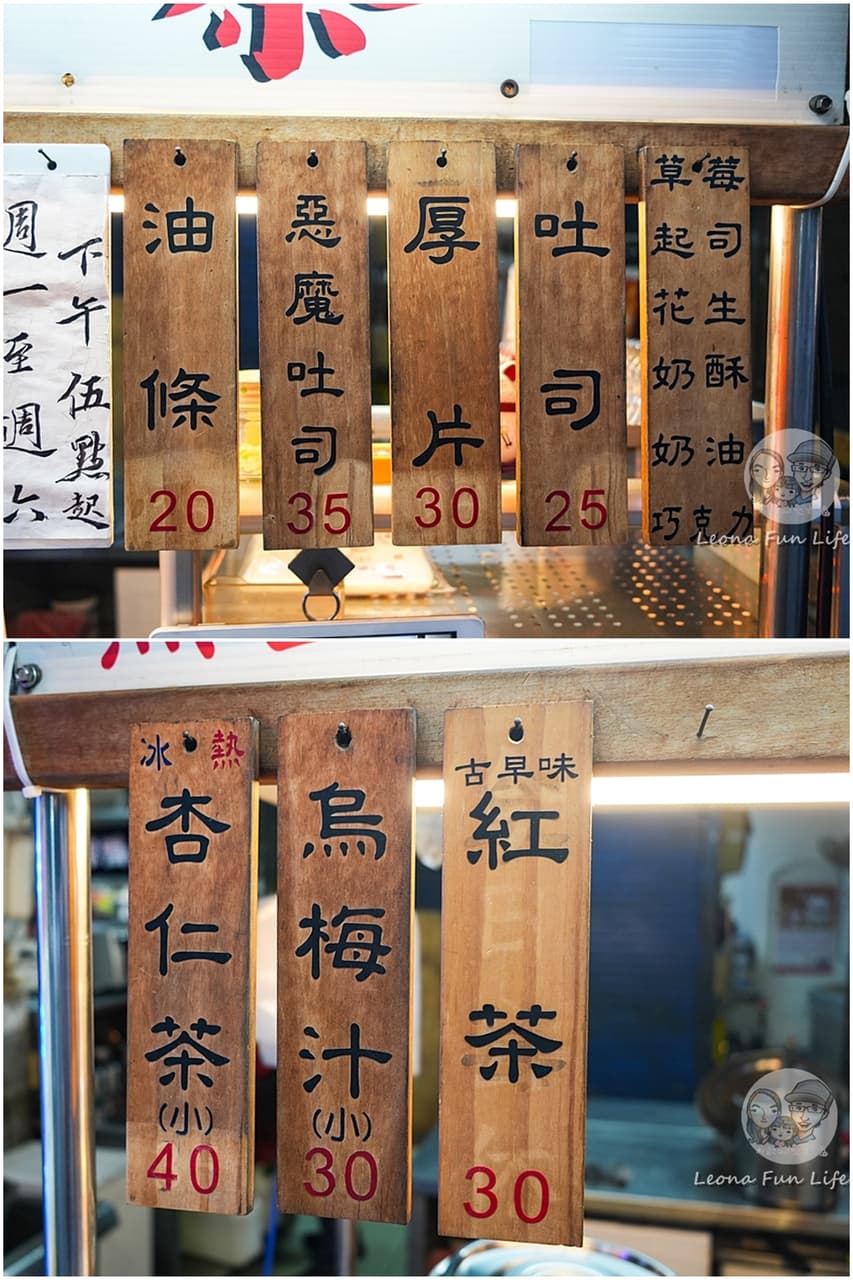 週一至週六
下午伍點起
油條
20
惡魔吐司
35
厚片
30
吐司
25
草莓
起司
花生
奶酥
奶油
巧克力
Leona Fun Life
冰 熱
杏仁茶
(小)
40
烏梅汁
(小)
30
古早味
紅茶
30
Leona Fun Life